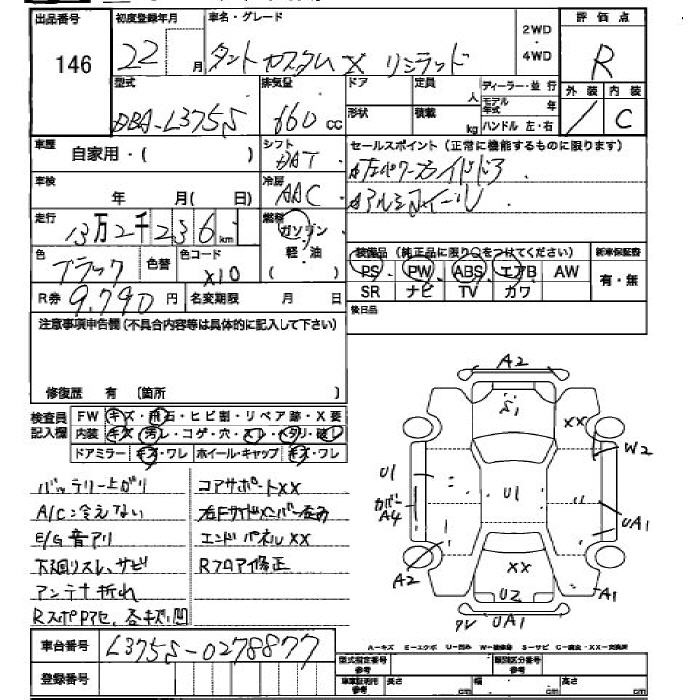 出品番号
146
初度登録年月
22 月
車名・グレード
タント カスタム X リミテッド
2WD
・
4WD
評価点
R
型式
DBA-L375S
排気量
660 cc
ドア
形状
定員
人
積載
kg
ディーラー・並行
モデル年式 年
ハンドル 左・右
外装 内装
C
車歴
自家用・( )
シフト
DAT
セールスポイント(正常に機能するものに限ります)
車検
年 月( 日)
冷房
AAC
走行
13万2千236km
燃料
ガソリン
軽・油
( )
色
ブラック
色替
色コード
X10
装備品(純正品に限り○をつけてください)
新車保証書
PS PW ABS エアB AW
有・無
SR ナビ TV カワ
R券 9,790円
名変期限 月 日
後日品
注意事項申告欄(不具合内容等は具体的に記入して下さい)
修復歴 有 〔箇所 〕
検査員記入欄
FW キズ・飛石・ヒビ割・リペア跡・X要
内装 キズ・汚レ・コゲ・穴・スレ・ヘタリ・破レ
ドアミラー キズ・ワレ ホイール・キャップ キズ・ワレ
バッテリー上がり
A/C:冷えない
E/G音アリ
下廻リスレ、サビ
アンテナ折れ
コアサポートXX
右Fサイドメンバー歪み
エンドパネルXX
Rフロア修正
A2
S1
XX
W2
U1
カバー
A4
U1
UA1
A2
XX
U2
A1
UA1
車台番号
L375S-0278877
登録番号
A-キズ E-エクボ U-凹み W-補修跡 S-サビ C-腐食・XX-交換済
型式指定番号
参考
類別区分番号
参考
長さ cm
幅 cm
高さ cm